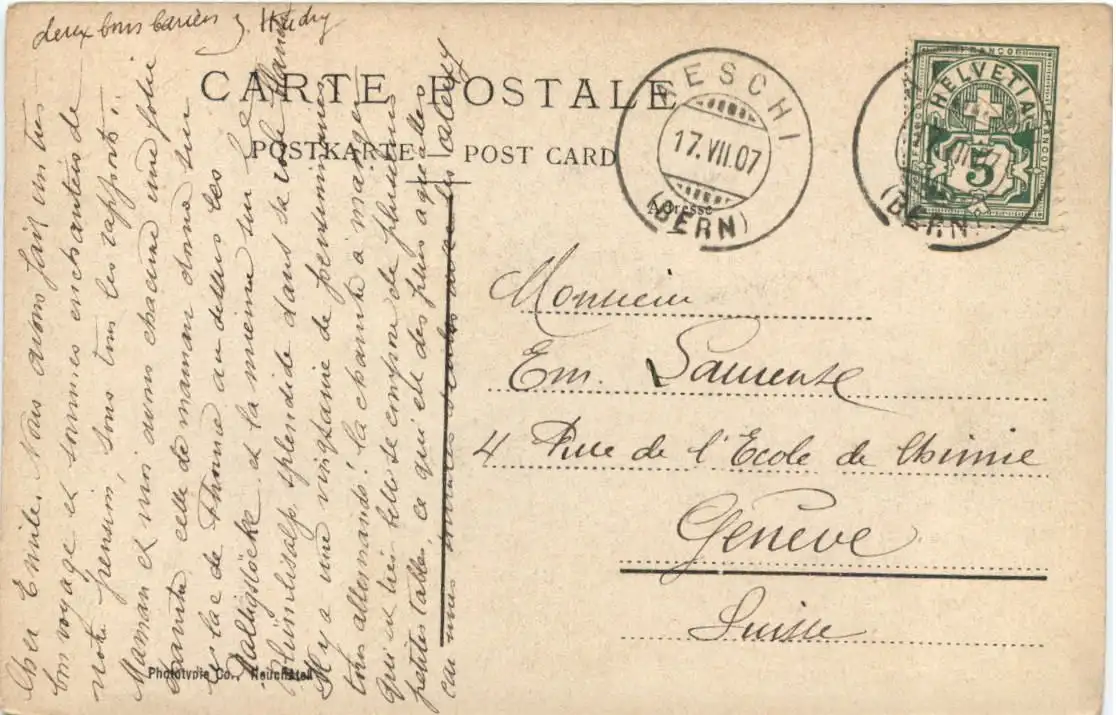 CARTE POSTALE
POSTKARTE — POST CARD
AESCHI
17.VII.07
(BERN)
FRANCO
HELVETIA
5
(BERN)
Adresse
Monsieur
Em.
4 Rue de l'Ecole de Chimie
Genève
Suisse
Cher Emile. Nous avons fait un très
bon voyage et sommes enchantées de
notre pension, sous tous les rapports.
Maman et moi avons chacune une jolie
chambre, celle de maman donne sur
le lac de Thoune au dessus les
Ralligstöcke et la mienne sur la
Blümlisalp, splendide dans sa robe blanche
Il y a une vingtaine de pensionnaires
tous allemands! la chambre à manger
qui est très belle se compose de plusieurs
petites tables, ce qui est des plus agréables
car nous
deux bons baisers
Phototypie Co., Neuchâtel